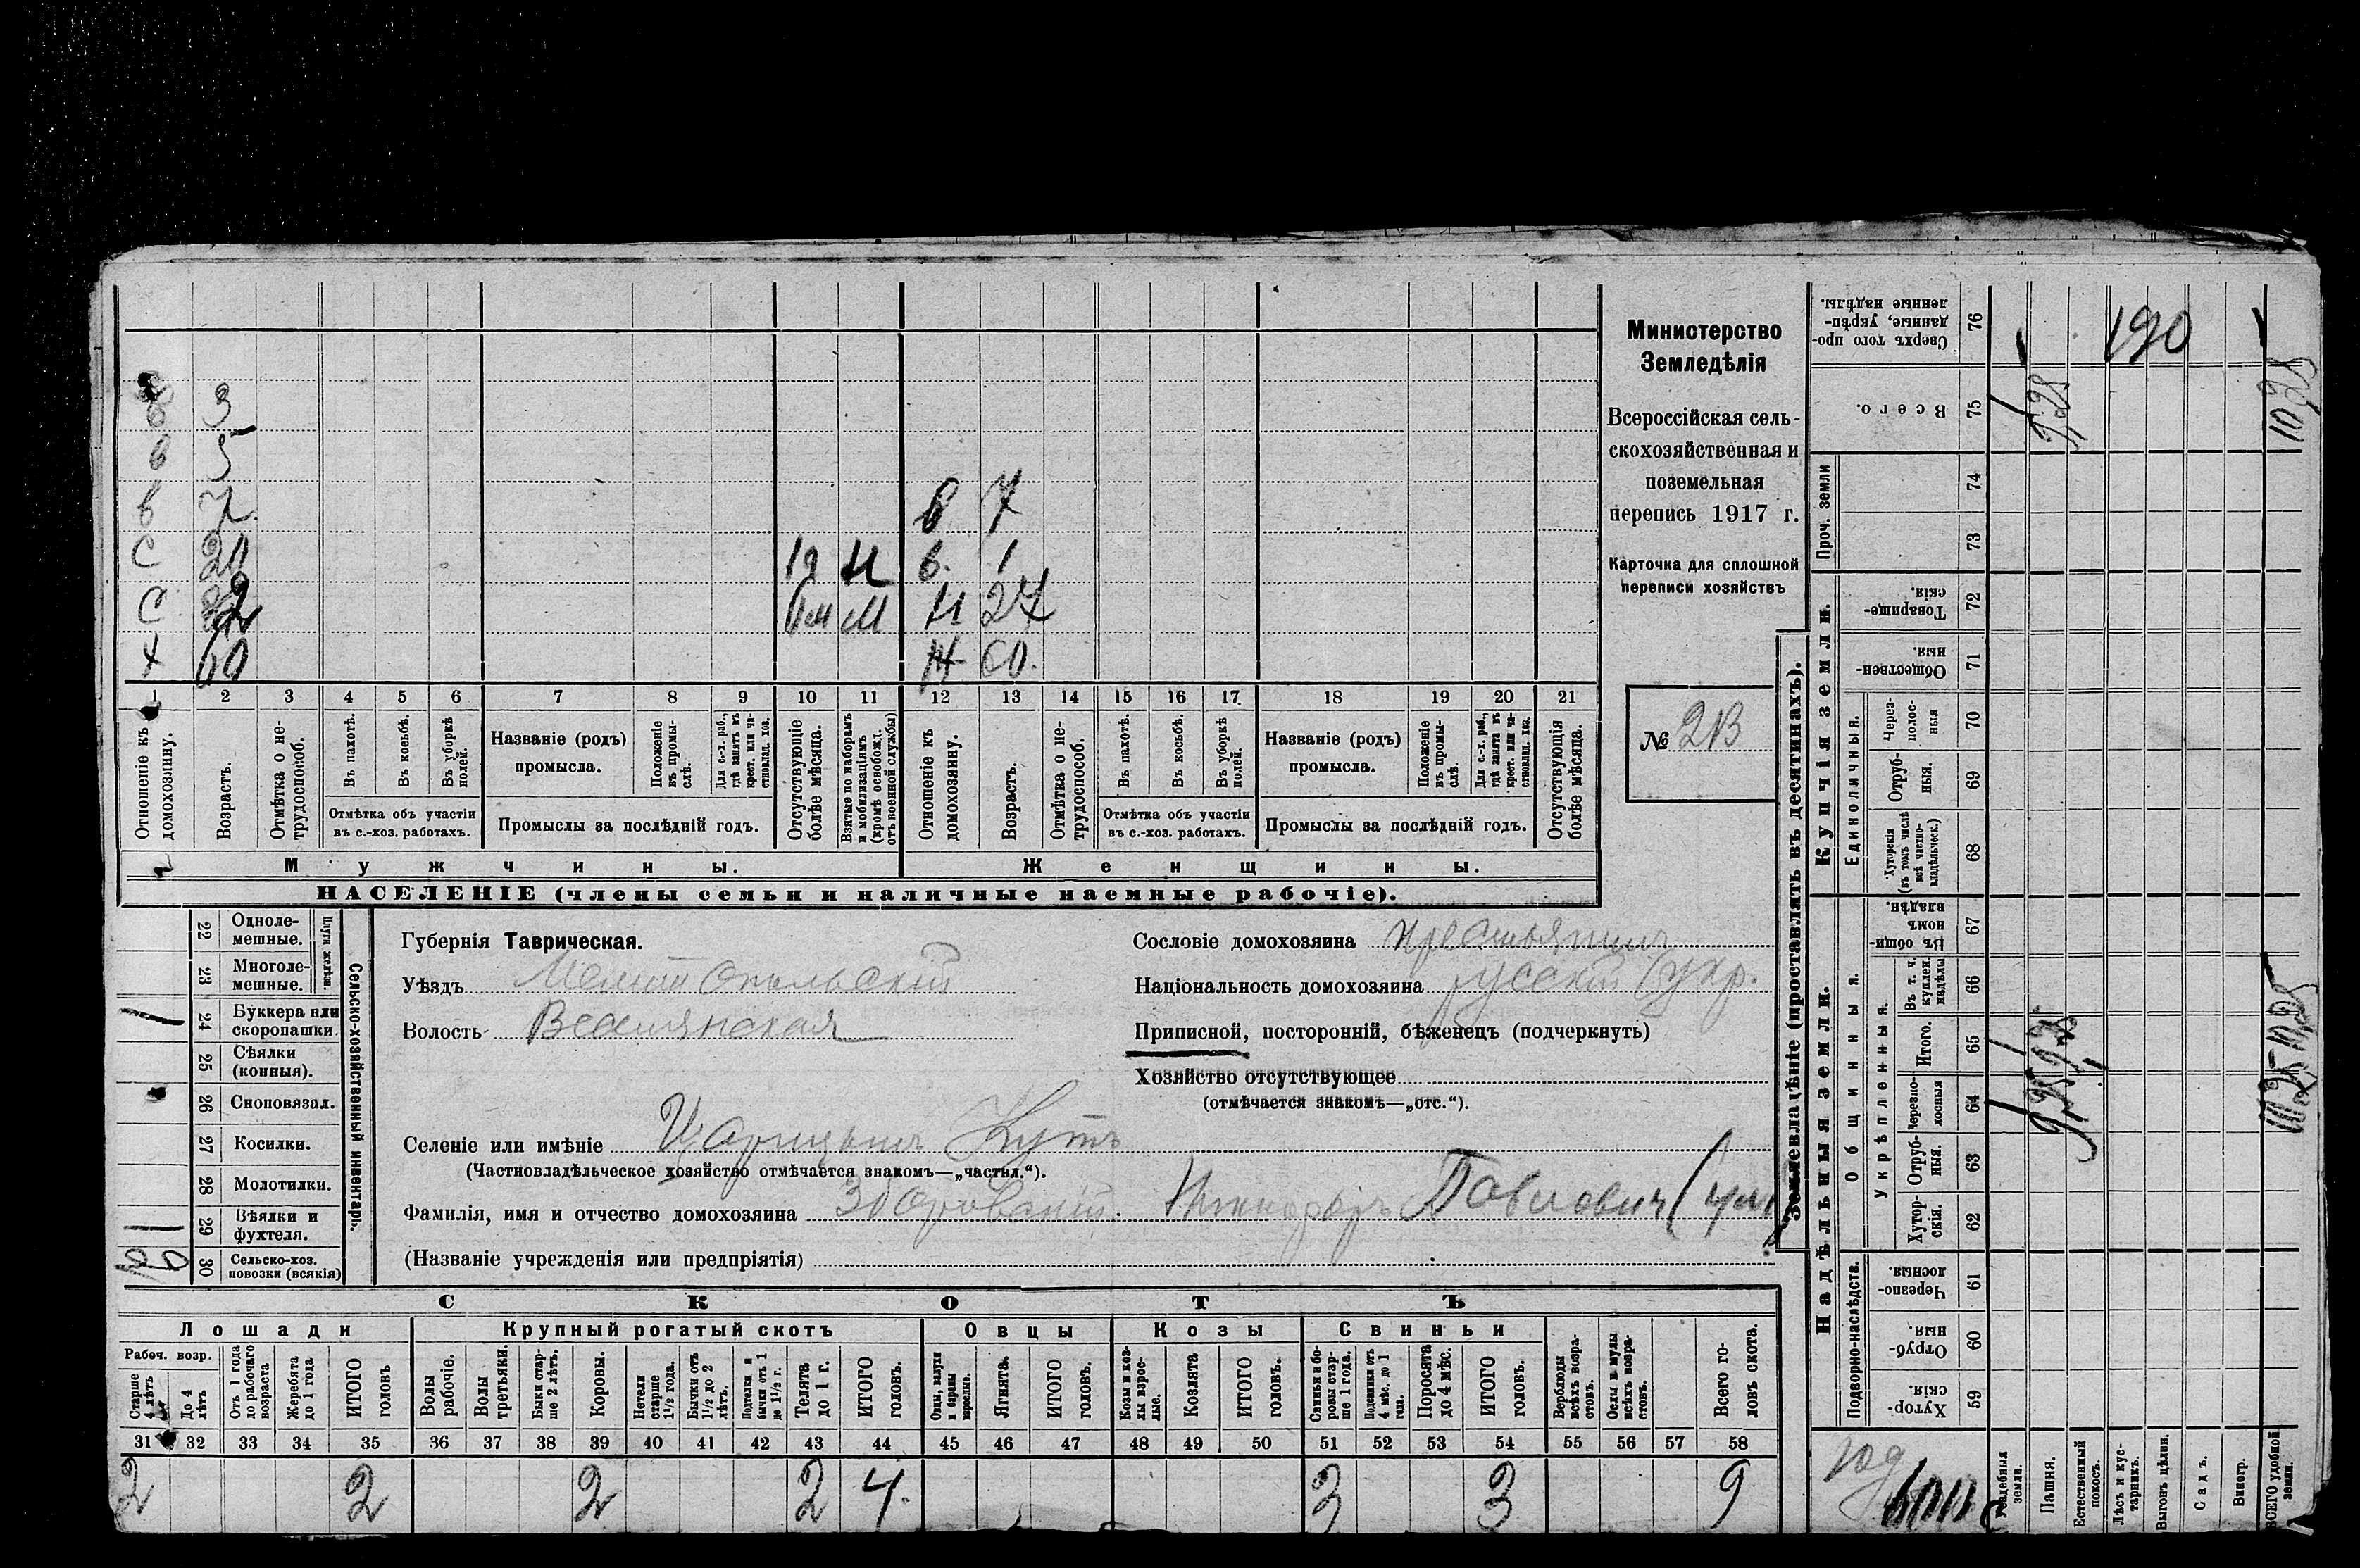 3
в 5
в 7 в 7
с 20 1г в. 1
с м Н 27
х 60 Ж 60.
1 2 3 4 5 6 7 8 9 10 11 12 13 14 15 16 17. 18 19 20 21
Отношеніе къ домохозяину.
Возрастъ.
Отмѣтка о нетрудоспособ.
Въ пахотѣ.
Въ косьбѣ.
Въ уборкѣ полей.
Отмѣтка объ участіи
въ с.-хоз. работахъ.
Названіе (родъ)
промысла.
Положеніе въ промыслѣ.
Для с.-х. раб., гдѣ занятъ въ крест. или частновлад. хоз.
Промыслы за послѣдній годъ.
Отсутствующіе болѣе мѣсяца.
Взятые по наборамъ и мобилизаціямъ (кромѣ освобожд. отъ военной службы)
Отношеніе къ домохозяину.
Возрастъ.
Отмѣтка о нетрудоспособ.
Въ пахотѣ.
Въ косьбѣ.
Въ уборкѣ полей.
Отмѣтка объ участіи
въ с.-хоз. работахъ.
Названіе (родъ)
промысла.
Положеніе въ промыслѣ.
Для с.-х. раб., гдѣ занята въ крест. или частновлад. хоз.
Промыслы за послѣдній годъ.
Отсутствующія болѣе мѣсяца.
Мужчины.
Женщины.
НАСЕЛЕНІЕ (члены семьи и наличные наемные рабочіе).
Министерство
Земледѣлія
Всероссійская сель-
скохозяйственная и
поземельная
перепись 1917 г.
Карточка для сплошной
переписи хозяйствъ
№ 213
Сельско-хозяйственный инвентарь.
Плуги желѣзн.
22 Одноле-
мешные.
23 Многоле-
мешные.
24 Буккера или
скоропашки.
25 Сѣялки
(конныя).
26 Сноповязал.
27 Косилки.
28 Молотилки.
29 Вѣялки и
фухтеля.
30 Сельско-хоз.
повозки (всякія)
Губернія Таврическая.
Уѣздъ Мелитопольскій
Волость Веселянская
Селеніе или имѣніе Царицынъ Кутъ
(Частновладѣльческое хозяйство отмѣчается знакомъ—„частвл.“).
Фамилія, имя и отчество домохозяина Зборовскій Никифоръ Павловичъ (ум)
(Названіе учрежденія или предпріятія)
Сословіе домохозяина крестьянинъ
Національность домохозяина русскій (укр.
Приписной, посторонній, бѣженецъ (подчеркнуть)
Хозяйство отсутствующее
(отмѣчается знакомъ—„отс.“).
СКОТЪ
Лошади Крупный рогатый скотъ Овцы Козы Свиньи
Рабоч. возр.
Старше 4 лѣтъ
До 4 лѣтъ
Отъ 1 года до рабочаго возраста
Жеребята до 1 года
ИТОГО головъ
Волы рабочіе.
Волы третьяки.
Быки старше 2 лѣтъ.
Коровы.
Нетели старше 1½ года.
Бычки отъ 1½ до 2 лѣтъ.
Подтелки и бычки отъ 1 до 1½ г.
Телята до 1 г.
ИТОГО головъ.
Овцы, валухи и бараны взрослые.
Ягнята.
ИТОГО головъ.
Козы и козлы взрослые.
Козлята
ИТОГО головъ.
Свиньи и боровы старше 1 года.
Подсвинки отъ 4 мѣс. до 1 года.
Поросята до 4 мѣс.
ИТОГО головъ.
Верблюды всѣхъ возрастовъ.
Ослы и мулы всѣхъ возрастовъ.
Всего головъ скота.
31 32 33 34 35 36 37 38 39 40 41 42 43 44 45 46 47 48 49 50 51 52 53 54 55 56 57 58
2 2 2 2 4. 3 3 9
Землевладѣніе (проставлять въ десятинахъ).
Купчія земли.
Надѣльныя земли.
Сверхъ того проданные, укрѣпленные надѣлы. 76 190
Всего. 75 9,28 10,28
Проч. земли 74
73
Товарищескія. 72
Общественныя. 71
Единоличныя.
Черезполосныя 70
Отрубныя. 69
Хуторскія (въ томъ числѣ всѣ частновладѣльческ.) 68
Общинныя.
Въ общинномъ владѣн. 67
Укрѣпленныя.
Въ т. ч. куплен. надѣлы 66
Итого. 65
Черезполосныя 64
Отрубныя. 63
Хуторскія. 62
Подворно-наслѣдств.
Черезполосныя. 61
Отрубныя. 60
Хуторскія. 59
Усадебныя земли.
Пашня.
Естественный покосъ.
Лѣсъ и кустарникъ.
Выгонъ цѣлин.
Садъ.
Виногр.
ВСЕГО удобной земли.